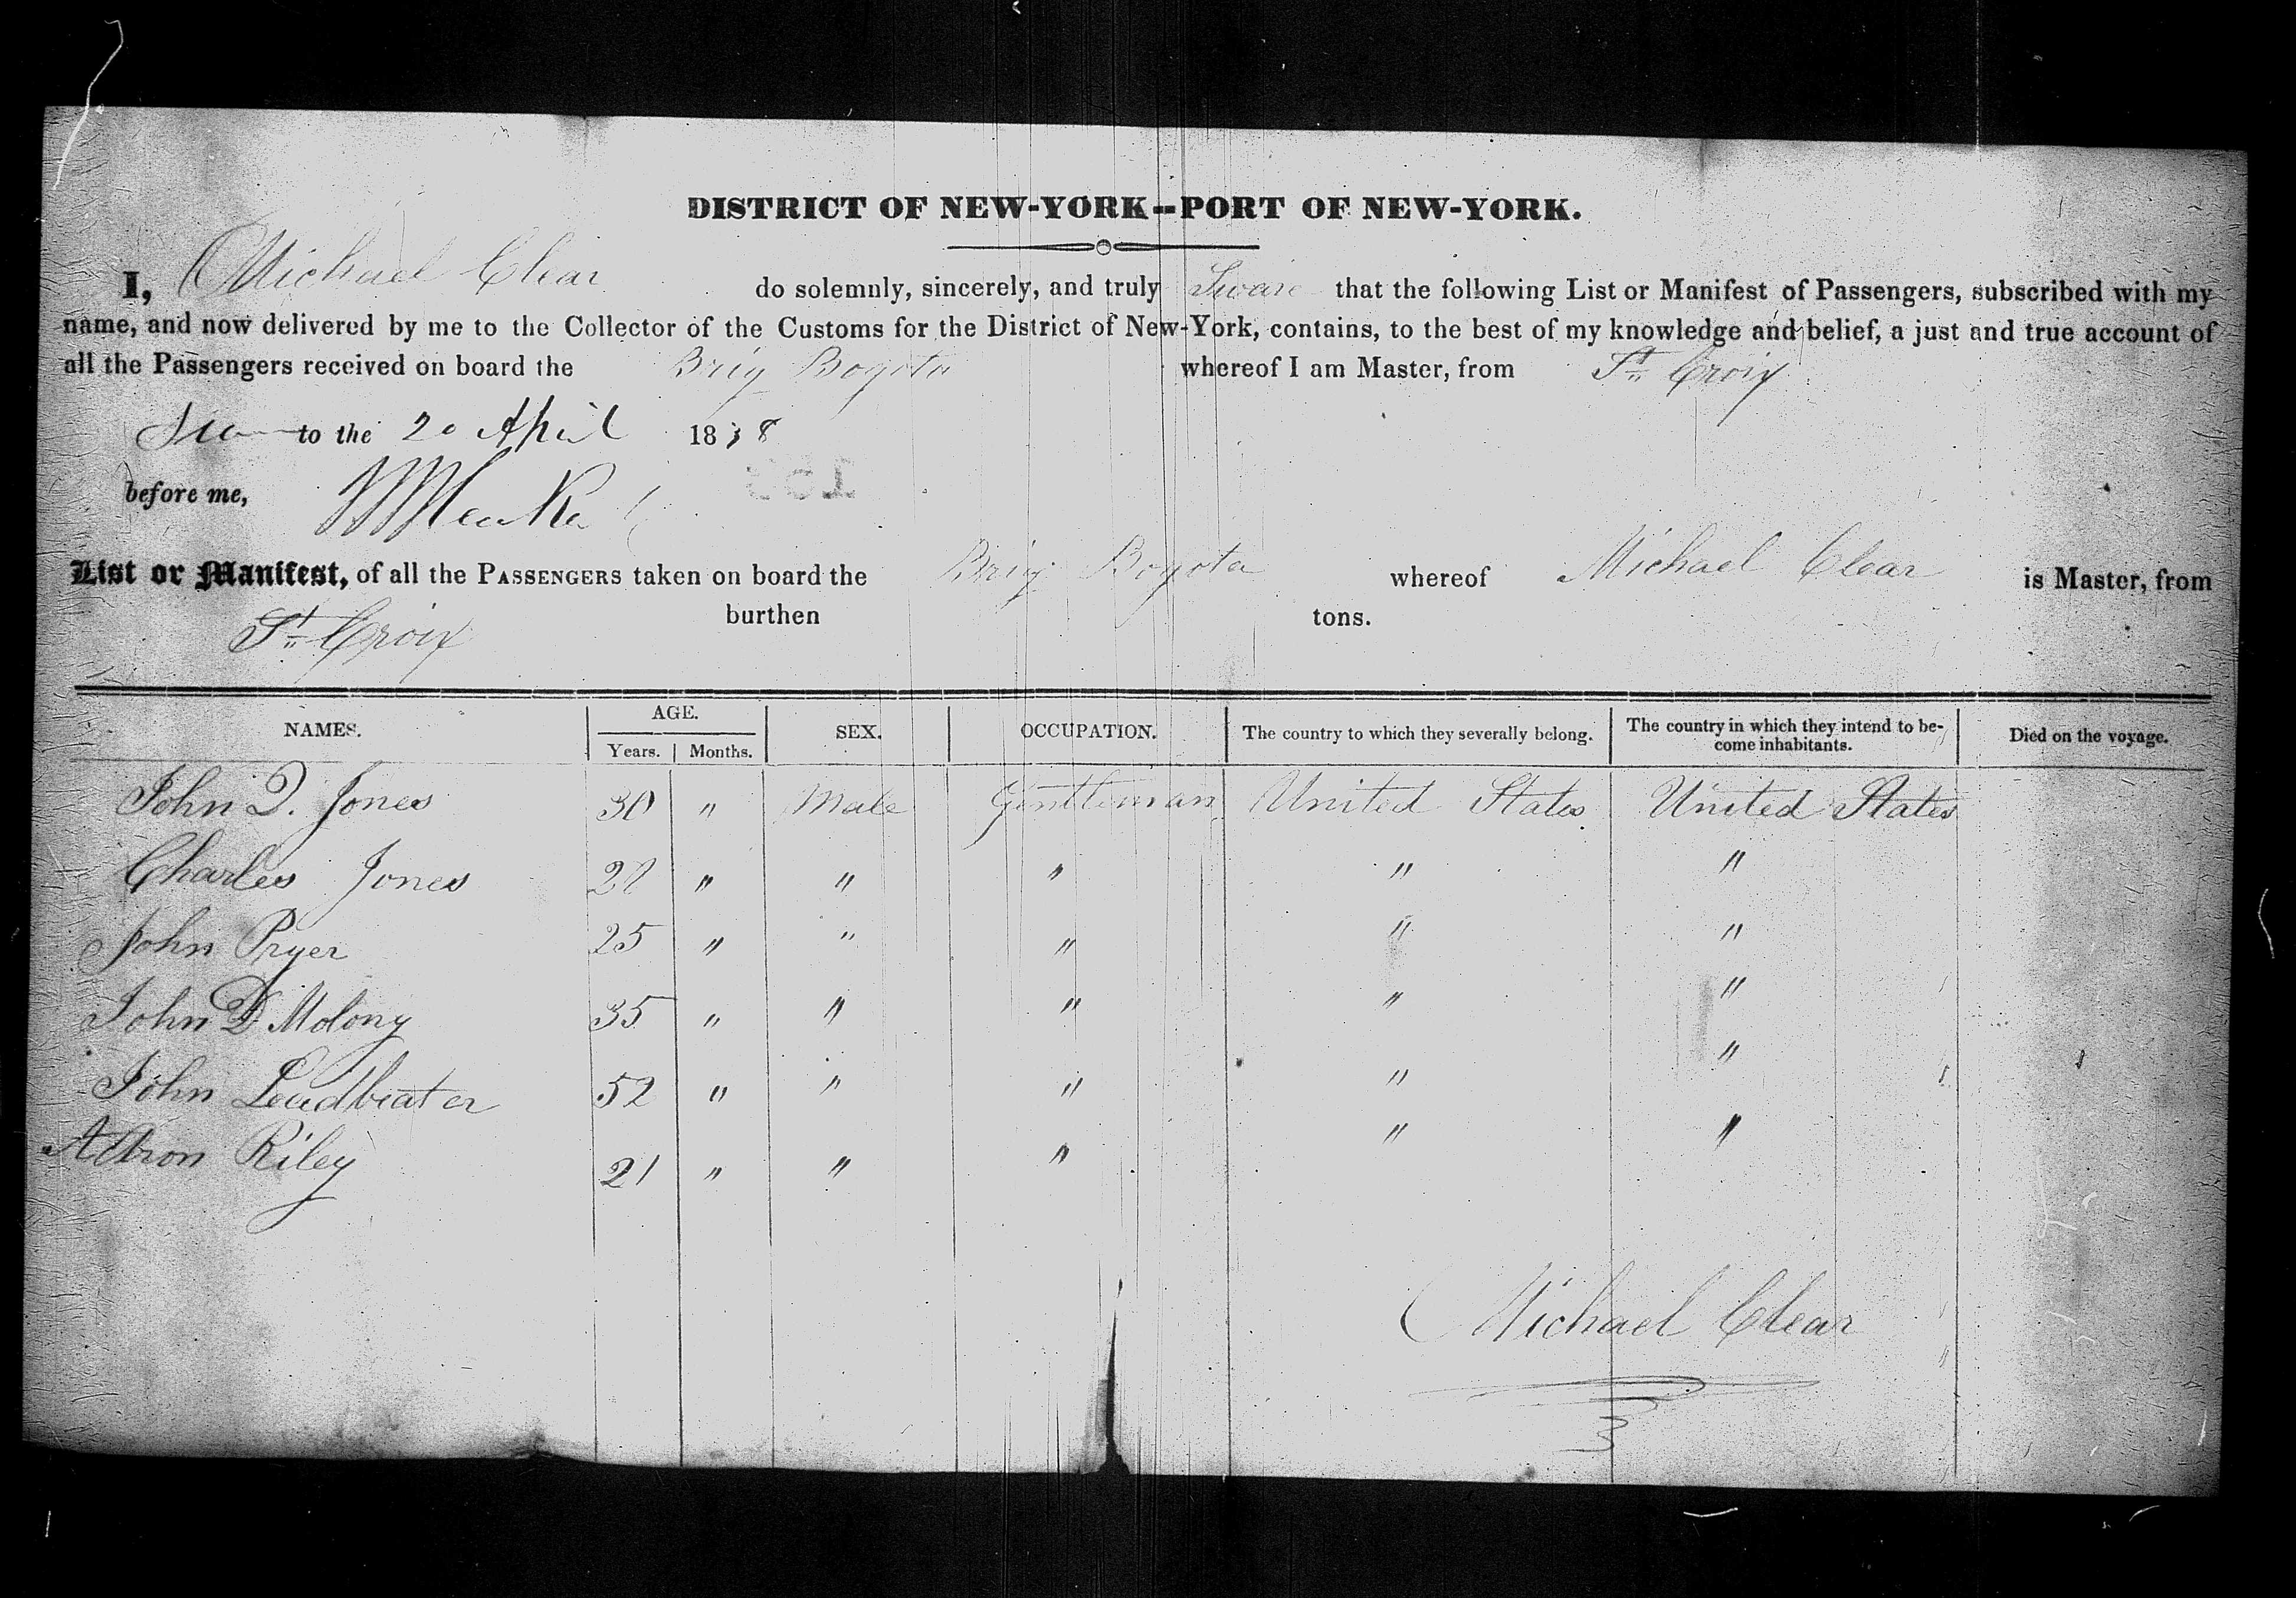 DISTRICT OF NEW-YORK--PORT OF NEW-YORK.
I, Michael Clear do solemnly, sincerely, and truly Sware that the following List or Manifest of Passengers, subscribed with my
name, and now delivered by me to the Collector of the Customs for the District of New-York, contains, to the best of my knowledge and belief, a just and true account of
all the Passengers received on board the Brig Bogota whereof I am Master, from St. Croix
to the 20 April 1838
before me,
List or Manifest, of all the PASSENGERS taken on board the Brig Bogota whereof Michael Clear is Master, from
St. Croix burthen tons.
NAMES. AGE. Years. Months. SEX. OCCUPATION. The country to which they severally belong. The country in which they intend to be-come inhabitants. Died on the voyage.
John D. Jones 30 " Male Gentleman United States United States
Charles Jones 28 " " " " "
John Pryer 25 " " " " "
John D Molony 35 " " " " "
John Leadbeater 52 " " " " "
Aaron Riley 21 " " " " "
Michael Clear